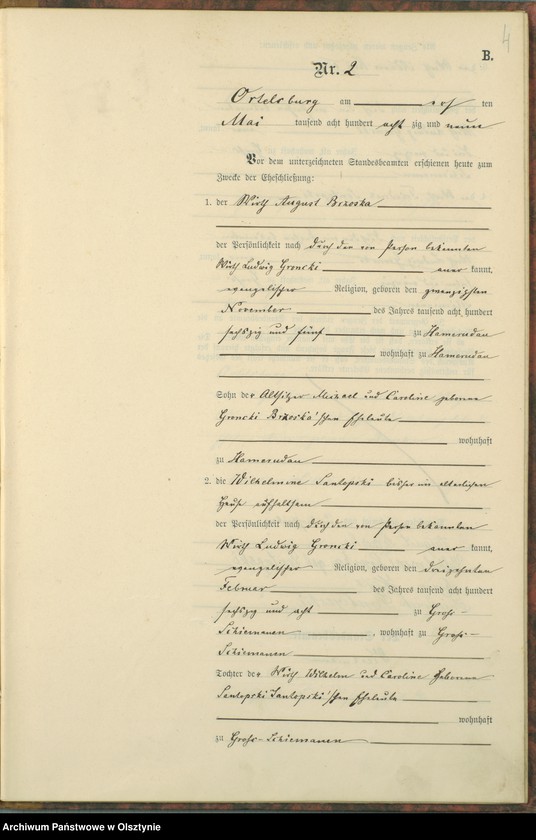 4
B.
Nr. 2
Ortelsburg am ersten
Mai tausend acht hundert achtzig und neun
Vor dem unterzeichneten Standesbeamten erschienen heute zum
Zwecke der Eheschließung:
1. der Wirth August Brzoska
der Persönlichkeit nach durch den von Person bekannten
Wirth Ludwig Groncki anerkannt,
evangelischer Religion, geboren den zwanzigsten
November des Jahres tausend acht hundert
sechszig und fünf zu Hamerudau
wohnhaft zu Hamerudau
Sohn der Altsitzer Michael und Caroline geborene
Groncki Brzoska'schen Eheleute
wohnhaft
zu Hamerudau
2. die Wilhelmine bisher im elterlichen
Hause aufhaltsam
der Persönlichkeit nach durch den von Person bekannten
Wirth Ludwig Groncki anerkannt,
evangelischer Religion, geboren den dreizehnten
Februar des Jahres tausend acht hundert
sechszig und acht zu Groß-
Schiemanen, wohnhaft zu Groß-
Schiemanen
Tochter der Wirth Wilhelm und Caroline geborene
Eheleute
wohnhaft
zu Groß-Schiemanen
Archiwum Państwowe w Olsztynie